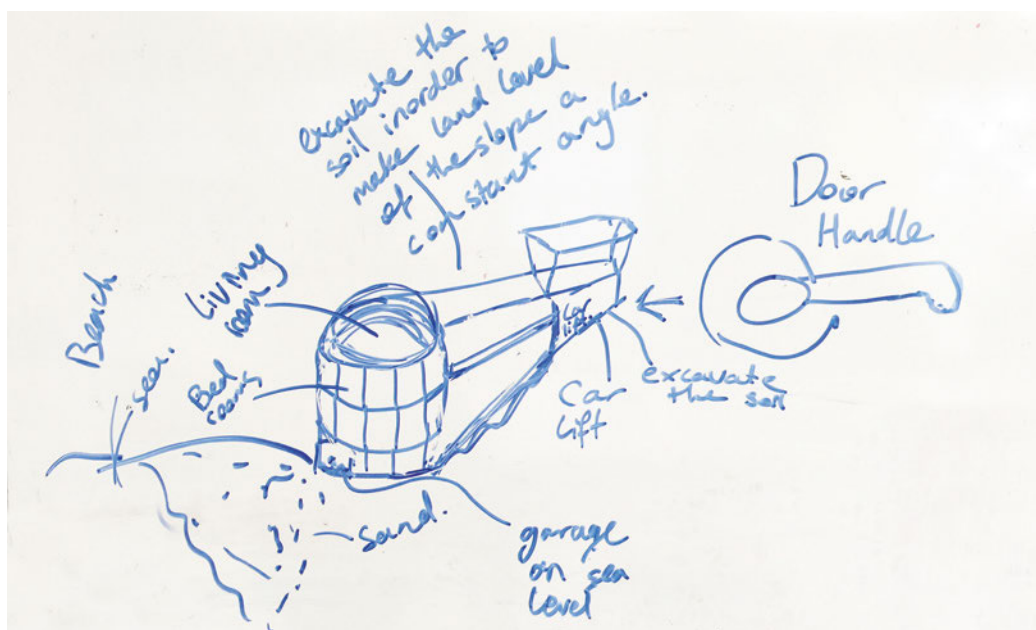 excavate the
soil inorder to
make land level
of the slope a
constant angle.
Door
Handle
Living
room
Beach
sea.
Bed
rooms
Car
lift
Car
lift
excavate
the soil
Sand.
garage
on sea
level